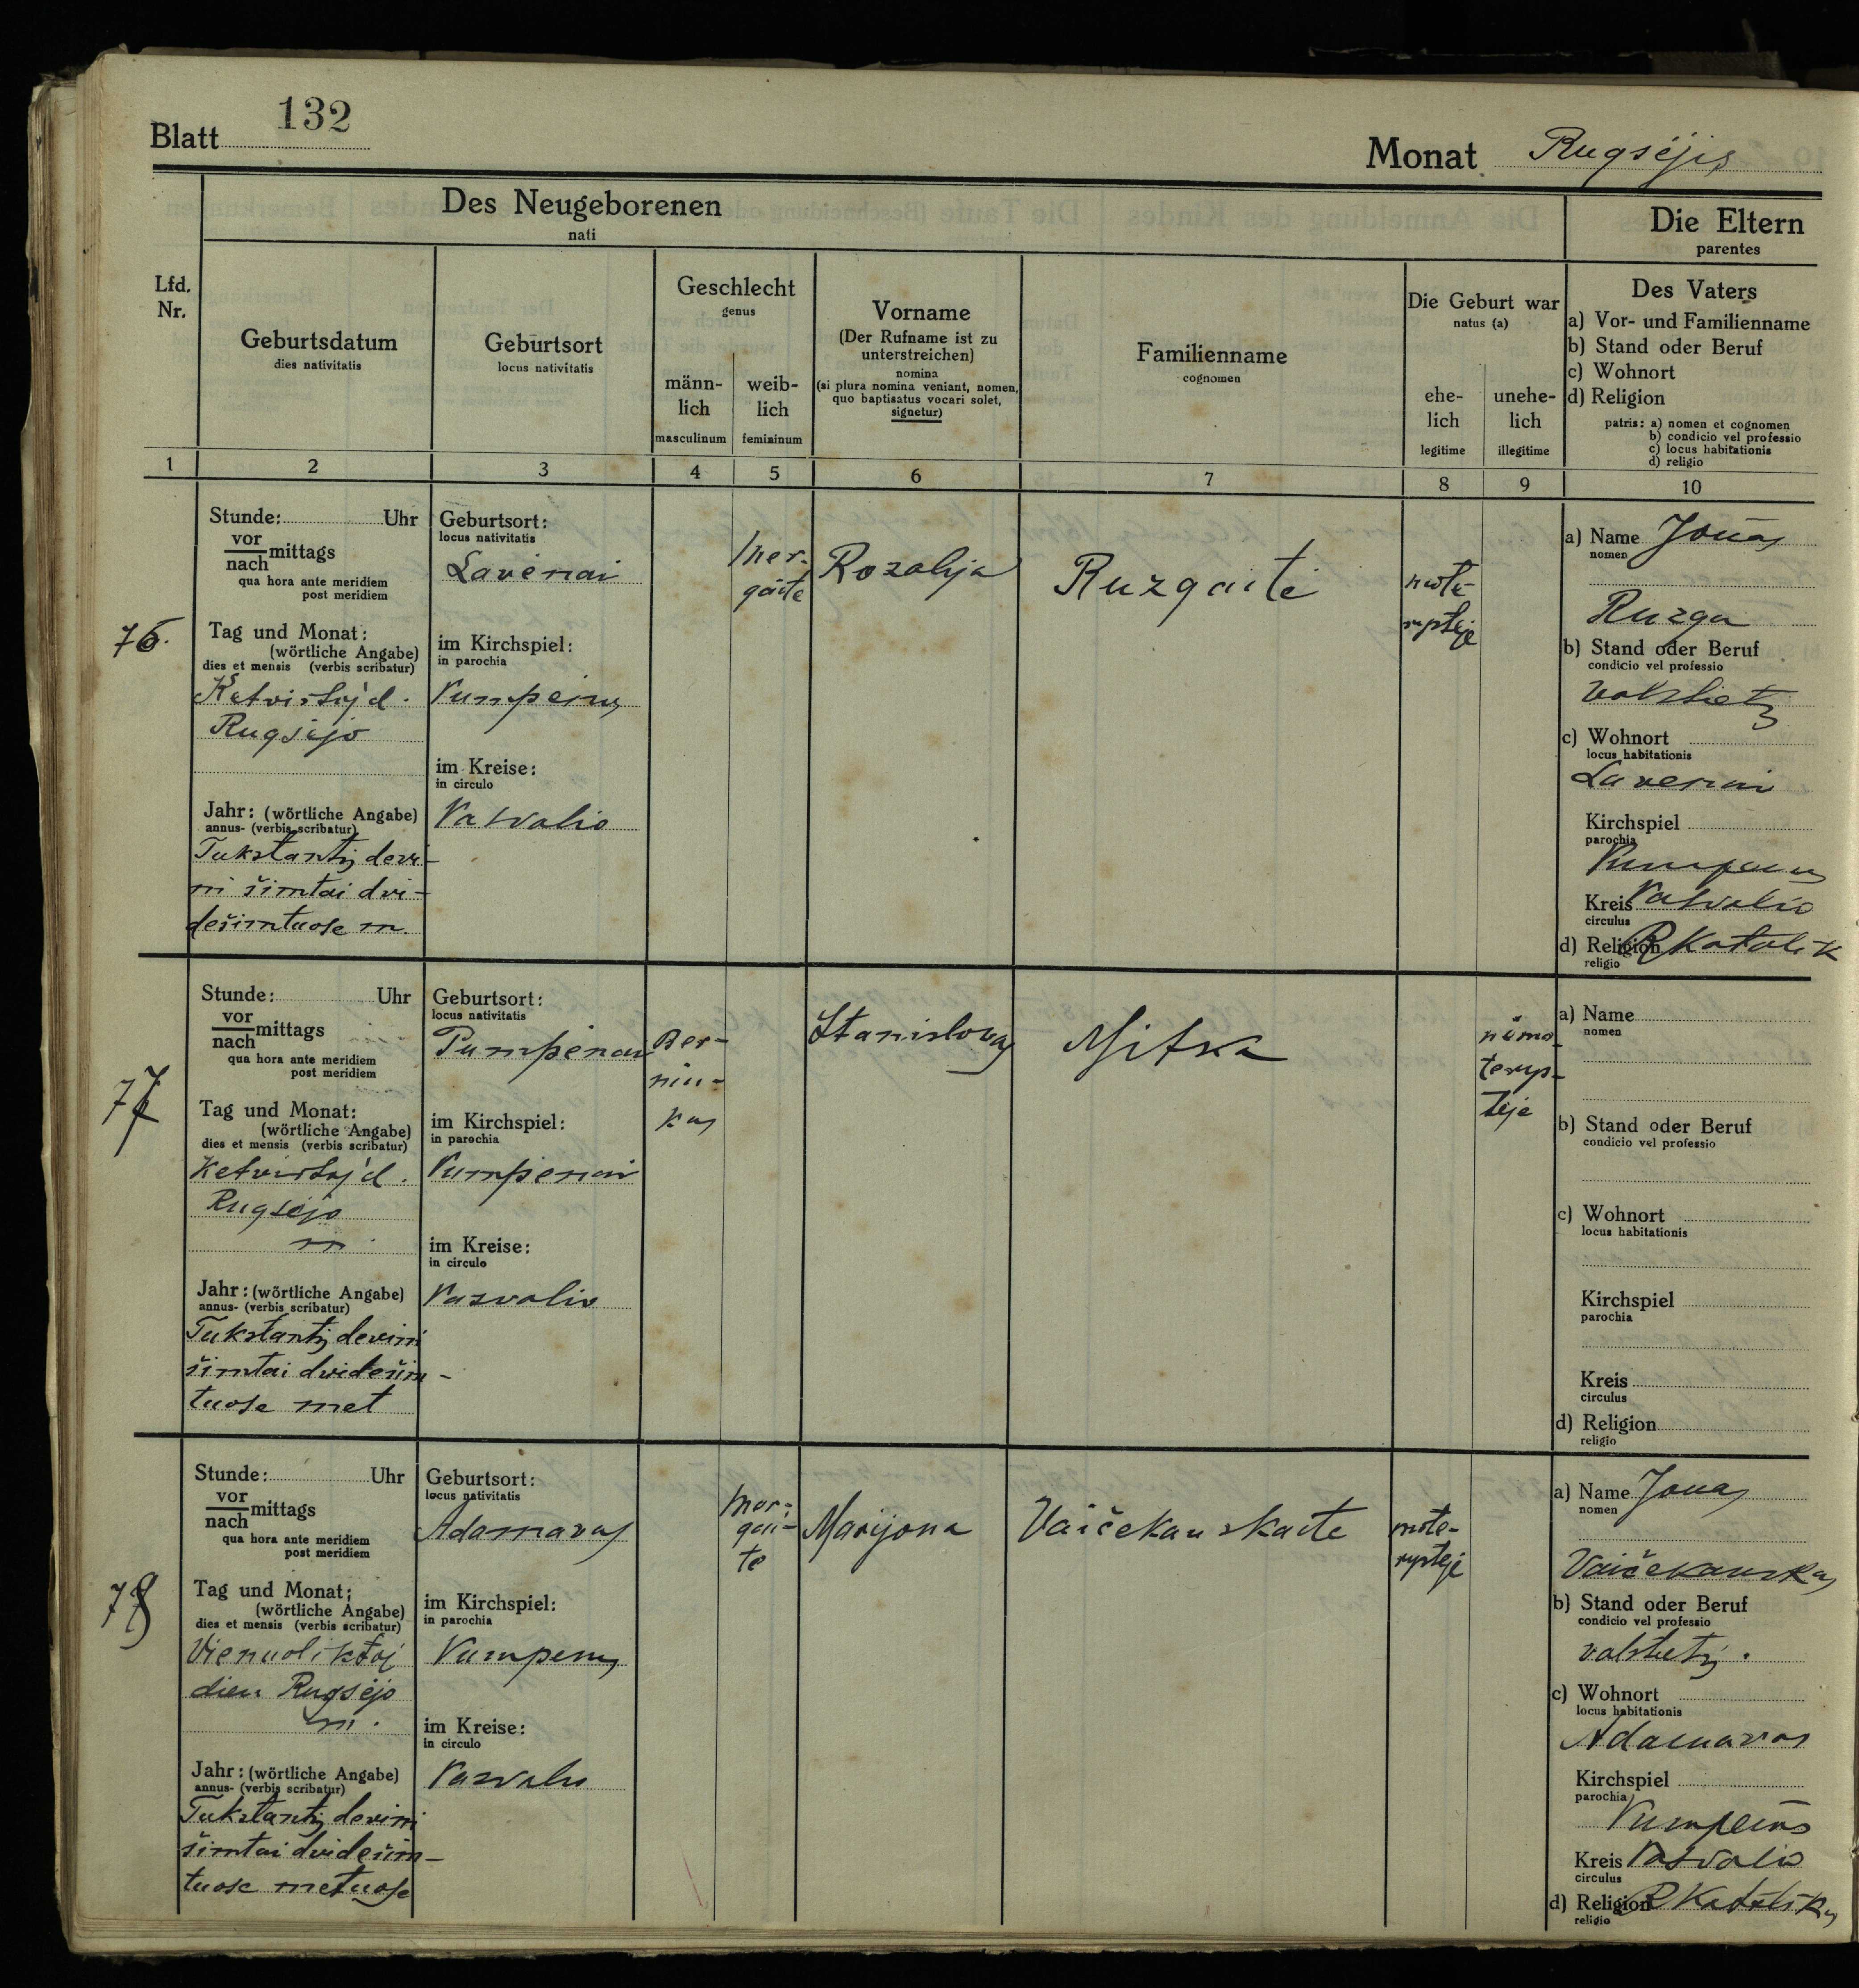 132
Blatt
Monat Rugsėjis
Des Neugeborenen
nati
Die Eltern
parentes
Lfd.
Nr.
Geburtsdatum
dies nativitatis
Geburtsort
locus nativitatis
Geschlecht
genus
männ-
lich
masculinum
weib-
lich
femininum
Vorname
(Der Rufname ist zu
unterstreichen)
nomina
(si plura nomina veniant, nomen,
quo baptisatus vocari solet,
signetur)
Familienname
cognomen
Die Geburt war
natus (a)
ehe-
lich
legitime
unehe-
lich
illegitime
Des Vaters
a) Vor- und Familienname
b) Stand oder Beruf
c) Wohnort
d) Religion
patris: a) nomen et cognomen
b) condicio vel professio
c) locus habitationis
d) religio
1 2 3 4 5 6 7 8 9 10
76.
Stunde: Uhr
vor
nach mittags
qua hora ante meridiem
post meridiem
Tag und Monat:
(wörtliche Angabe)
dies et mensis (verbis scribatur)
Ketvirtoj d.
Rugsėjo
Jahr: (wörtliche Angabe)
annus- (verbis scribatur)
Tukstantį devi-
ni šimtai dvi-
dešimtuose m.
Geburtsort:
locus nativitatis
Lavėnai
im Kirchspiel:
in parochia
Pumpėnų
im Kreise:
in circulo
Pasvalio
Mer-
gaitė
Rozalija
Ruzgaitė
mote-
rystėje
a) Name Jonas
nomen
Ruzga
b) Stand oder Beruf
condicio vel professio
valstietis
c) Wohnort
locus habitationis
Lavėnai
Kirchspiel
parochia
Pumpėnų
Kreis Pasvalio
circulus
d) Religion R Katalik
religio
77
Stunde: Uhr
vor
nach mittags
qua hora ante meridiem
post meridiem
Tag und Monat:
(wörtliche Angabe)
dies et mensis (verbis scribatur)
Ketvirtoj d.
Rugsėjo
m.
Jahr: (wörtliche Angabe)
annus- (verbis scribatur)
Tukstantį devini
šimtai dvidešim-
tuose met
Geburtsort:
locus nativitatis
Pumpėnai
im Kirchspiel:
in parochia
Pumpėnai
im Kreise:
in circulo
Pasvalio
Ber-
niu-
kas
Stanislovas
Mitka
nemo-
terys-
tėje
a) Name
nomen
b) Stand oder Beruf
condicio vel professio
c) Wohnort
locus habitationis
Kirchspiel
parochia
Kreis
circulus
d) Religion
religio
78
Stunde: Uhr
vor
nach mittags
qua hora ante meridiem
post meridiem
Tag und Monat:
(wörtliche Angabe)
dies et mensis (verbis scribatur)
Vienuoliktoj
dien Rugsėjo
m.
Jahr: (wörtliche Angabe)
annus- (verbis scribatur)
Tukstantį devini
šimtai dvidešim-
tuose metuose
Geburtsort:
locus nativitatis
Adamavas
im Kirchspiel:
in parochia
Pumpėnų
im Kreise:
in circulo
Pasvalio
Mer-
gai-
tė
Marijona
Vaičekauskaite
mote-
rystėj
a) Name Jonas
nomen
Vaičekauskas
b) Stand oder Beruf
condicio vel professio
valstietis.
c) Wohnort
locus habitationis
Adamavas
Kirchspiel
parochia
Pumpėnų
Kreis Pasvalio
circulus
d) Religion R Katalikas
religio